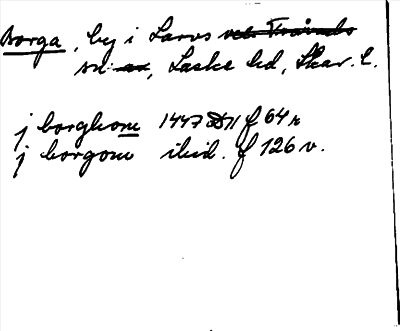 Borga, by i Larvs
sn, Laske hd, Skar. l.
j borghom 1447 f 64 r
j borgom ibid. f 126 v.